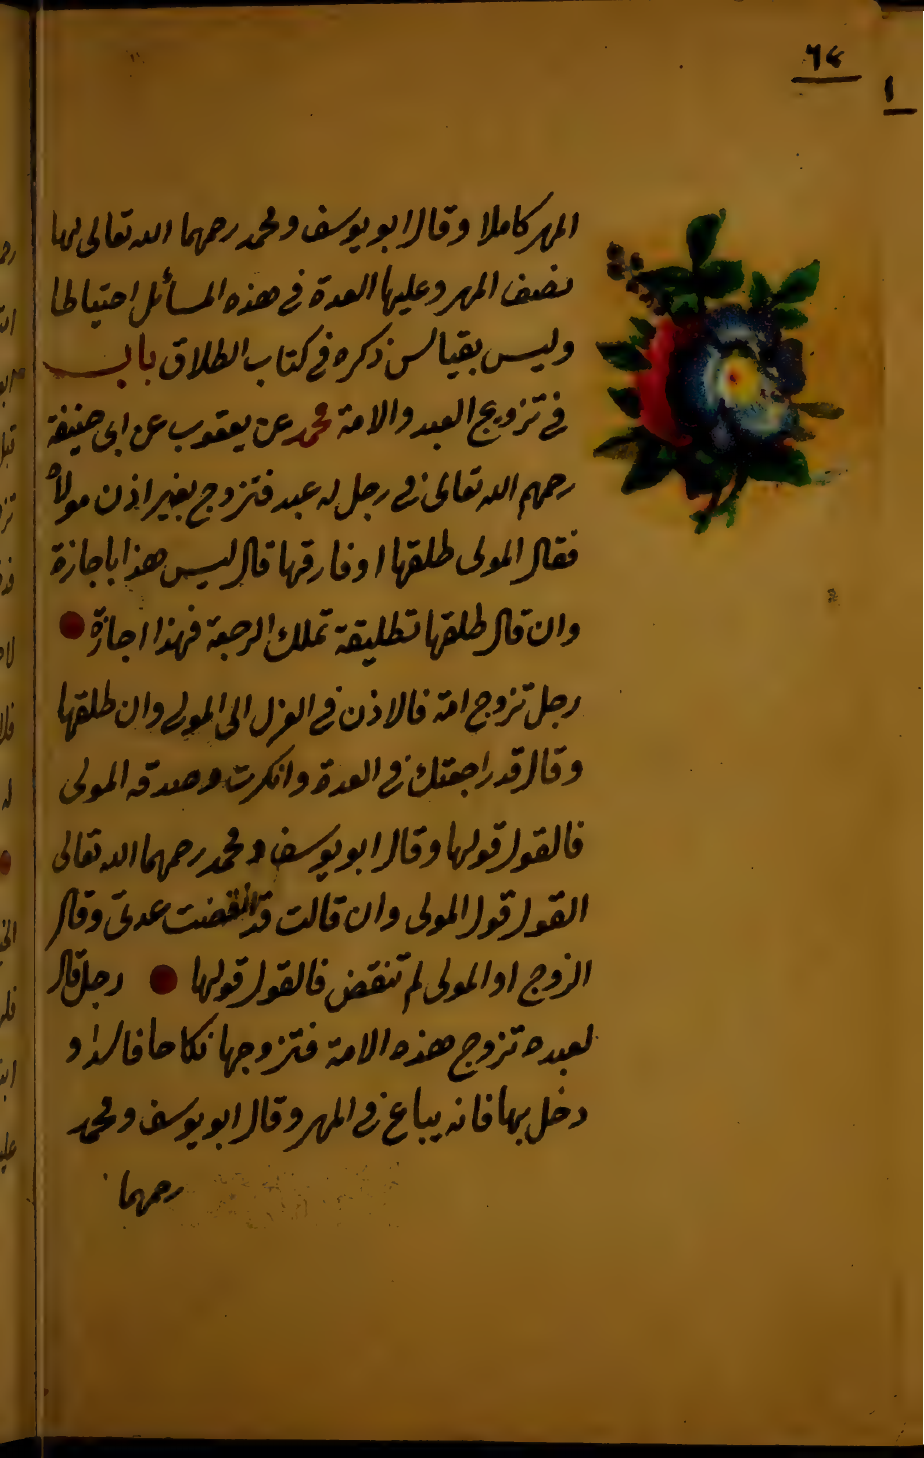 ٦٤
١
المهر كاملا وقال ابو يوسف ومحمد رحمهما الله تعالى لها
نصف المهر وعليها العدة في هذه المسائل احتياطا
وليس بقياس ذكره في كتاب الطلاق باب
في تزويج العبد والامة محمد عن يعقوب عن ابى حنيفة
رحمهم الله تعالى في رجل له عبد فتزوج بغير اذن مولاه
فقال المولى طلقها او فارقها قال ليس هذا باجازة
وان قال طلقها تطليقة تملك الرجعة فهذا اجازة
رجل تزوج امة فالاذن في العزل الى المولى وان طلقها
وقال قد راجعتك في العدة وانكرت وصدقه المولى
فالقول قولها وقال ابو يوسف ومحمد رحمهما الله تعالى
القول قول المولى وان قالت قد انقضت عدتى وقال
الزوج او المولى لم تنقض فالقول قولها رجل قال
لعبده تزوج هذه الامة فتزوجها نكاحا فاسدا و
دخل بها فانه يباع في المهر وقال ابو يوسف ومحمد
رحمهما